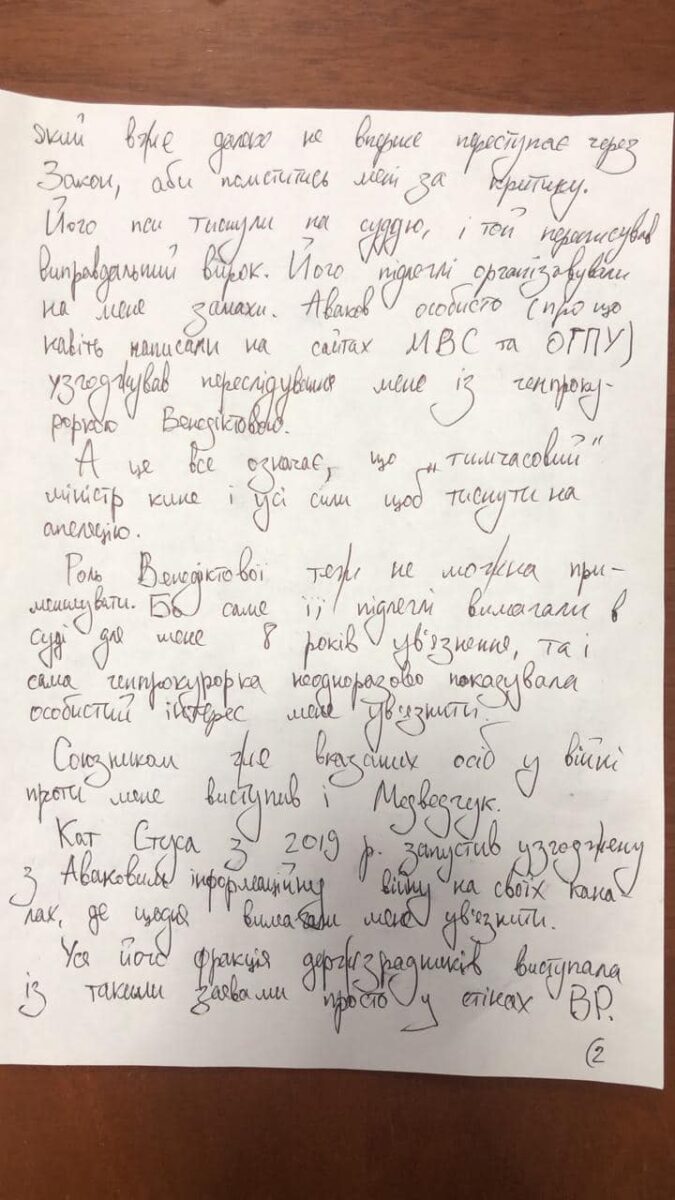 який вже далеко не вперше переступає через
Закон, аби помститись мені за критику.
Його пси тиснули на суддю, і той переписував
виправдальний вирок. Його підлеглі організовували
на мене замахи. Аваков особисто (про що
навіть написали на сайтах МВС та ОГПУ)
узгоджував переслідування мене із генпроку-
роркою Венедіктовою.
А це все означає, що „тимчасовий“
міністр кине і усі сили щоб тиснути на
апеляцію.
Роль Венедіктової теж не можна при-
меншувати. Бо саме її підлеглі вимагали в
суді для мене 8 років ув'язнення, та і
сама генпрокурорка неодноразово показувала
особистий інтерес мене ув'язнити.
Союзником же вказаних осіб у війні
проти мене виступив і Медведчук.
Кат Стуса з 2019 р. запустив узгоджену
з Аваковим інформаційну війну на своїх кана-
лах, де щодня вимагали мене ув'язнити.
Уся його фракція держзрадників виступала
із такими заявами просто у стінах ВР.
2